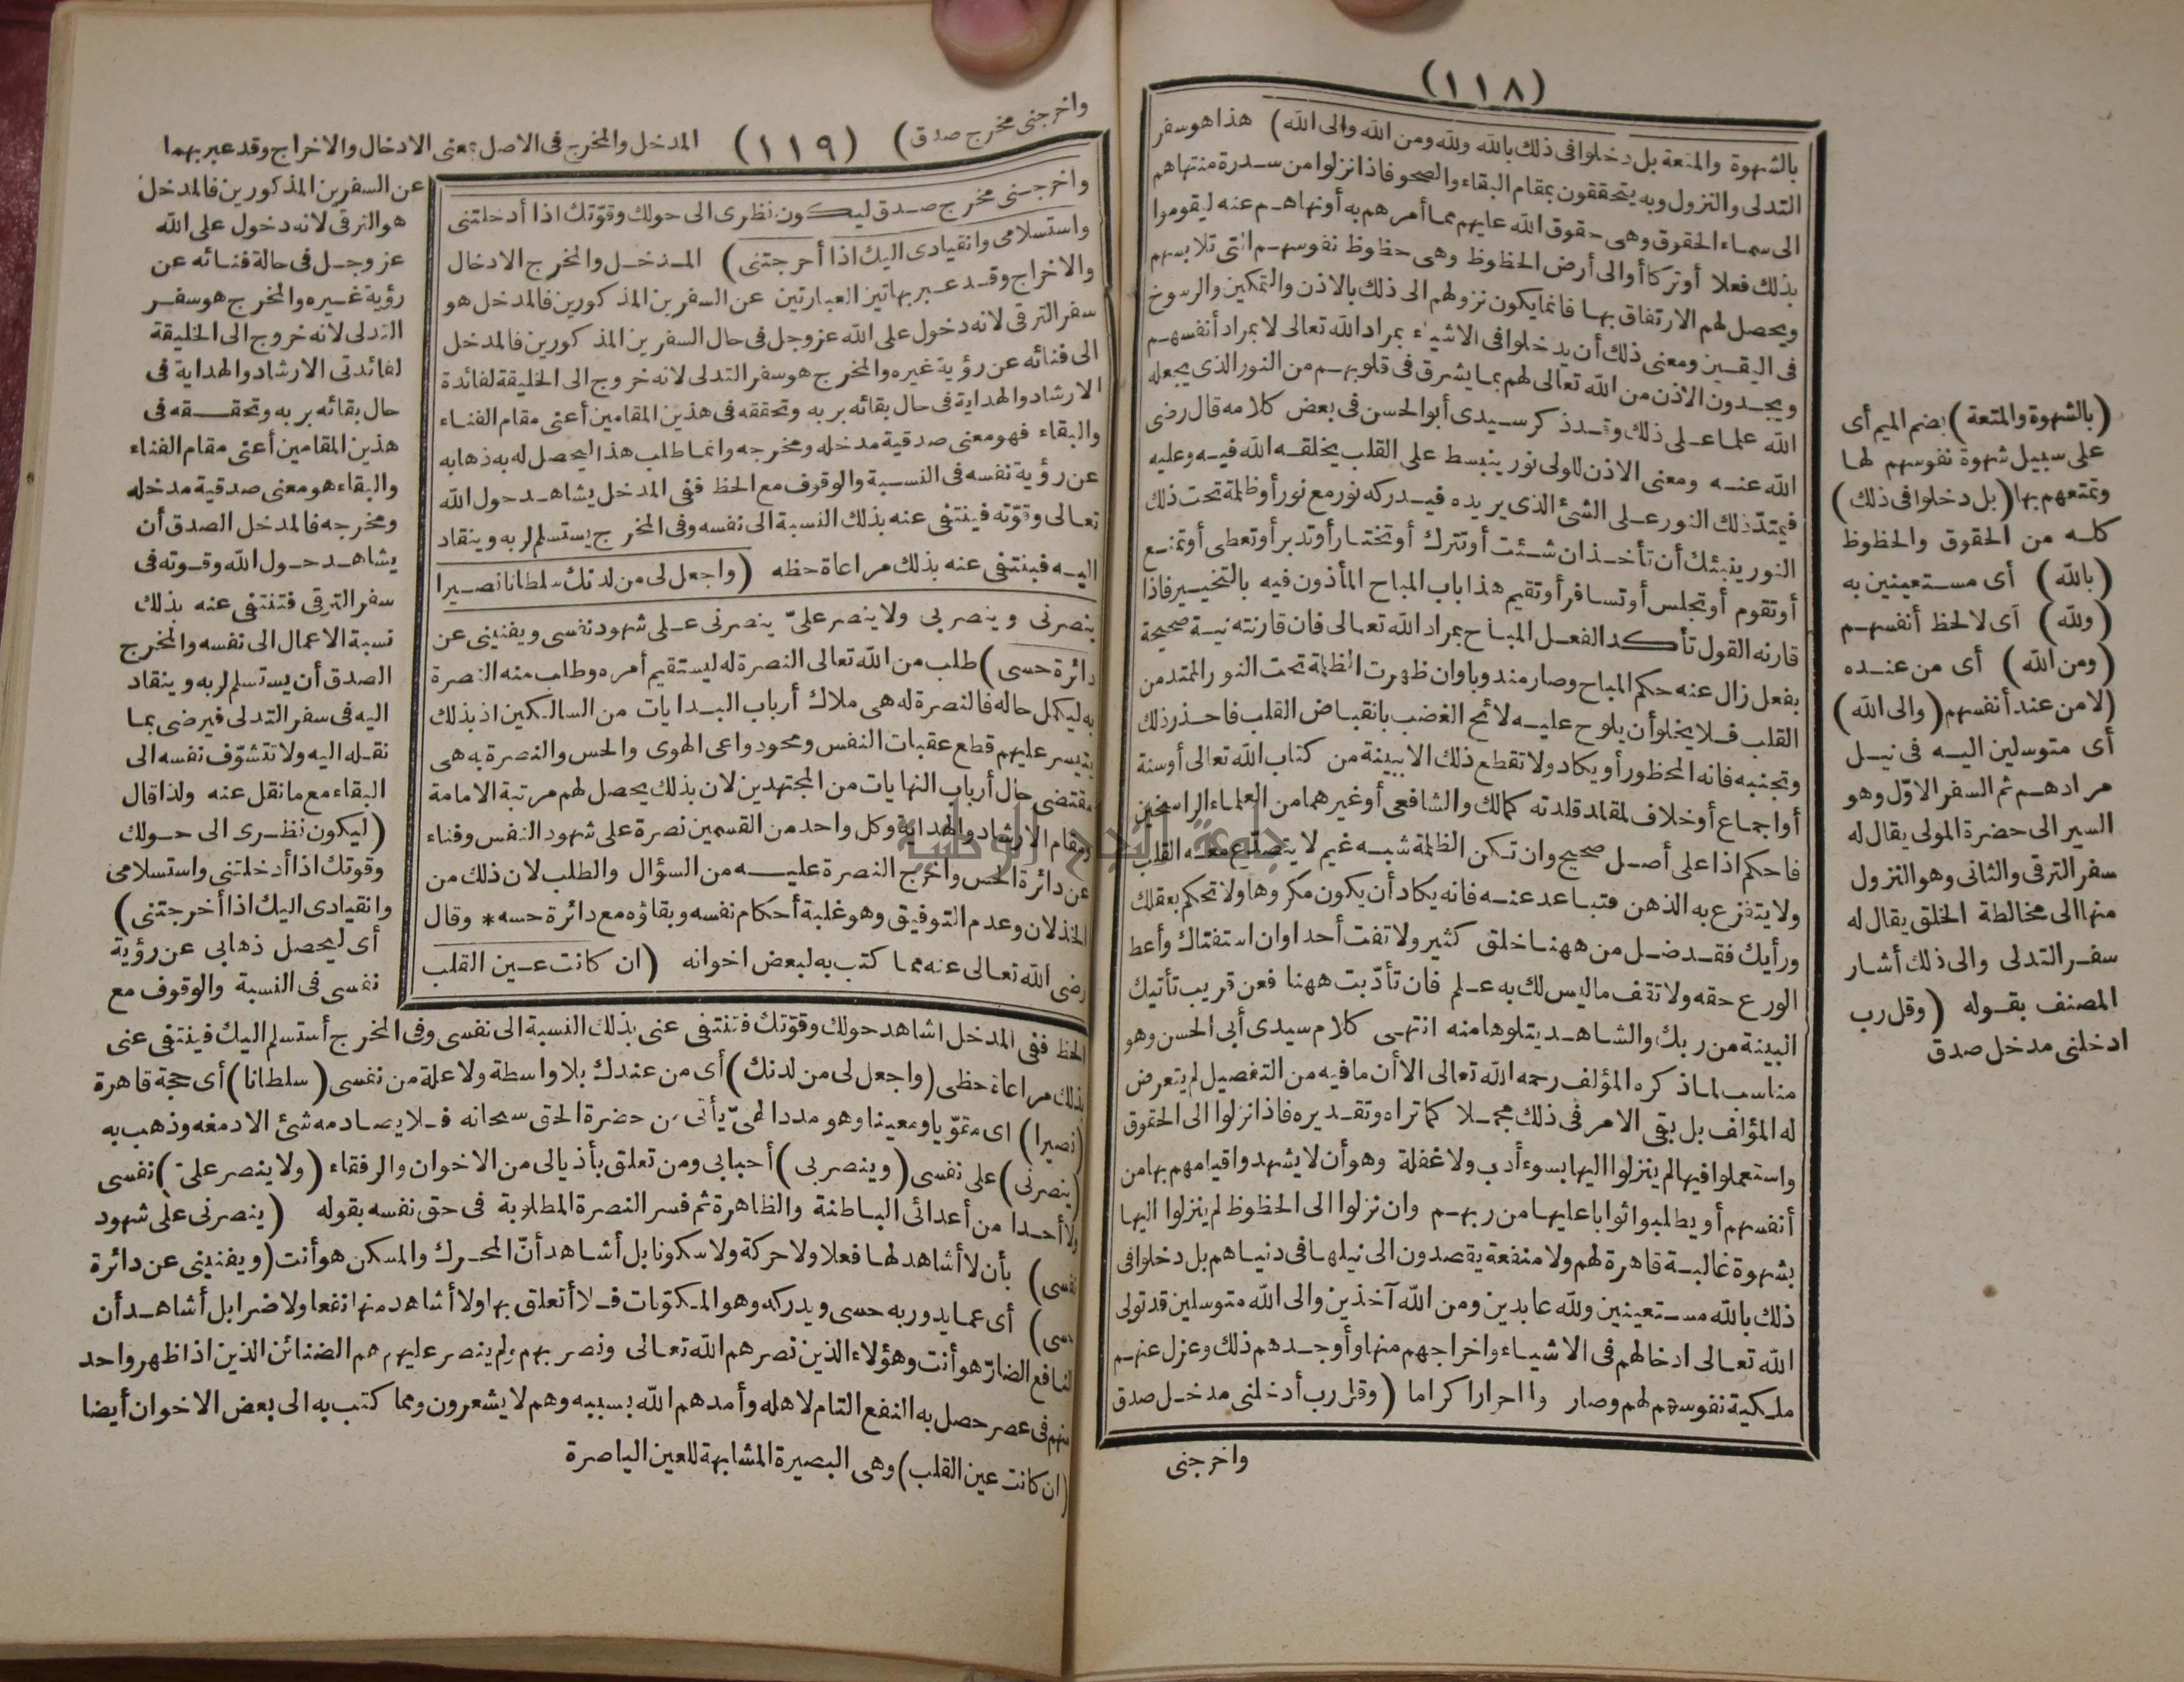 (١١٨)
بالشهوة والمتعة بل دخلوا فى ذلك بالله ولله ومن الله والى الله) هذا هو سفر
التدلى والنزول وبه يتحققون بمقام البقاء والصحو فاذا نزلوا من سدرة منتهاهم
الى سماء الحقوق وهى حقوق الله عليهم مما أمرهم به أو نهاهم عنه ليقوموا
بذلك فعلا أو تركا أوالى أرض الحظوظ وهى حظوظ نفوسهم التى تلابسهم
ويحصل لهم الارتفاق بها فانما يكون نزولهم الى ذلك بالاذن والتمكين والرسوخ
فى اليقين ومعنى ذلك أن يدخلوا فى الاشياء بمراد الله تعالى لا بمراد أنفسهم
ويجدون الاذن من الله تعالى لهم بما يشرق فى قلوبهم من النور الذى يجعله
الله علما على ذلك وقد ذكر سيدى أبو الحسن فى بعض كلامه قال رضى
الله عنه ومعنى الاذن للولى نور ينبسط على القلب يخلقه الله فيه وعليه
فيمتد ذلك النور على الشئ الذى يريده فيدركه نور مع نور أو ظلمة تحت ذلك
النور ينبئك أن تأخذ ان شئت أو تترك أو تختار أو تدبر أو تعطى أو تمنع
أو تقوم أو تجلس أو تسافر أو تقيم هذا باب المباح المأذون فيه بالتخيير فاذا
قارنه القول تأكد الفعل المباح بمراد الله تعالى فان قارنته نية صحيحة
بفعل زال عنه حكم المباح وصار مندوبا وان ظهرت الظلمة تحت النور الممتد من
القلب فلا يخلو أن يلوح عليه لائح الغضب بانقباض القلب فاحذر ذلك
وتجنبه فانه المحظور أو يكاد ولا تقطع ذلك الا ببينة من كتاب الله تعالى أو سنة
أو اجماع أو خلاف لمقلد قلدته كمالك والشافعى أو غيرهما من العلماء الراسخين
فاحكم اذا على أصل صحيح وان تكن الظلمة شبه غيم لا ينصلع معه القلب
ولا يتفزع به الذهن فتباعد عنه فانه يكاد أن يكون مكروها ولا تحكم بعقلك
ورأيك فقد ضل من ههنا خلق كثير ولا تفت أحدا وان استفتاك وأعط
الورع حقه ولا تقف ما ليس لك به علم فان تأدّبت ههنا فعن قريب تأتيك
البينة من ربك والشاهد يتلوها منه انتهى كلام سيدى أبى الحسن وهو
مناسب لما ذكره المؤلف رحمه الله تعالى الا أن ما فيه من التفصيل لم يتعرض
له المؤلف بل بقى الامر فى ذلك مجملا كما تراه وتقديره فاذا نزلوا الى الحقوق
واستعملوا فيها لم ينزلوا اليها بسوء أدب ولا غفلة وهو أن لا يشهدوا قيامهم بها من
أنفسهم أو يطلبوا ثوابا عليها من ربهم وان نزلوا الى الحظوظ لم ينزلوا اليها
بشهوة غالبة قاهرة لهم ولا منفعة يقصدون الى نيلها فى دنياهم بل دخلوا فى
ذلك بالله مستعينين ولله عابدين ومن الله آخذين والى الله متوسلين قد تولى
الله تعالى ادخالهم فى الاشياء واخراجهم منها وأوجدهم ذلك وعزل عنهم
ملكية نفوسهم لهم وصاروا احرارا كراما (وقل رب أدخلنى مدخل صدق
واخرجنى
(بالشهوة والمتعة) بضم الميم أى
على سبيل شهوة نفوسهم لها
وتمتعهم بها (بل دخلوا فى ذلك)
كله من الحقوق والحظوظ
(بالله) أى مستعينين به
(ولله) أى لا لحظ أنفسهم
(ومن الله) أى من عنده
(لا من عند أنفسهم (والى الله)
أى متوسلين اليه فى نيل
مرادهم ثم السفر الاوّل وهو
السير الى حضرة المولى يقال له
سفر الترقى والثانى وهو النزول
منها الى مخالطة الخلق يقال له
سفر التدلى والى ذلك أشار
المصنف بقوله (وقل رب
ادخلنى مدخل صدق
(١١٩)
واخرجنى مخرج صدق) المدخل والمخرج فى الاصل بمعنى الادخال والاخراج وقد عبر بهما
عن السفرين المذكورين فالمدخل
هو الترقى لانه دخول على الله
عز وجل فى حالة فنائه عن
رؤية غيره والمخرج هو سفر
التدلى لانه خروج الى الخليقة
لفائدتى الارشاد والهداية فى
حال بقائه بربه وتحققه فى
هذين المقامين أعنى مقام الفناء
والبقاء هو معنى صدقية مدخله
ومخرجه فالمدخل الصدق أن
يشاهد حول الله وقوته فى
سفر الترقى فتنتفى عنه بذلك
نسبة الاعمال الى نفسه والمخرج
الصدق أن يستسلم لربه وينقاد
اليه فى سفر التدلى فيرضى بما
نقله اليه ولا تتشوّف نفسه الى
البقاء مع ما نقل عنه ولذا قال
(ليكون نظرى الى حولك
وقوتك اذا أدخلتنى واستسلامى
وانقيادى اليك اذا أخرجتنى)
أى ليحصل ذهابى عن رؤية
نفسى فى النسبة والوقوف مع
الحظ ففى المدخل اشاهد حولك وقوّتك فتنتفى عنى بذلك النسبة الى نفسى وفى المخرج أستسلم اليك فينتفى عنى
بذلك مراعاة حظى (واجعل لى من لدنك) أى من عندك بلا واسطة ولا علة من نفسى (سلطانا) أى حجة قاهرة
(نصيرا) اى مقوّيا ومعينا وهو مدد الهىّ يأتى من حضرة الحق سبحانه فلا يصادمه شئ الا دمغه وذهب به
(ينصرنى) على نفسى (وينصر بى) أحبابى ومن تعلق بأذيالى من الاخوان والرفقاء (ولا ينصر علىّ) نفسى
ولا أحدا من أعدائى الباطنة والظاهرة ثم فسر النصرة المطلوبة فى حق نفسه بقوله (ينصرنى على شهود
نفسى) بأن لا أشاهد لها فعلا ولا حركة ولا سكونا بل أشاهد أنّ المحرك والمسكن هو أنت (ويفنينى عن دائرة
حسى) أى عما يدور به حسى ويدركه وهو المكوّنات فلا أتعلق بها ولا أشاهد منها نفعا ولا ضرا بل أشاهد أن
النافع الضارّ هو أنت وهؤلاء الذين نصرهم الله تعالى ونصر بهم ولم ينصر عليهم هم الضنائن الذين اذا ظهر واحد
منهم فى عصر حصل به النفع التام لاهله وأمدهم الله بسببه وهم لا يشعرون ومما كتب به الى بعض الاخوان أيضا
(ان كانت عين القلب) وهى البصيرة المشابهة للعين الباصرة
واخرجنى مخرج صدق ليكون نظرى الى حولك وقوّتك اذا أدخلتنى
واستسلامى وانقيادى اليك اذا أخرجتنى) المدخل والمخرج الادخال
والاخراج وقد عبر بهاتين العبارتين عن السفرين المذكورين فالمدخل هو
سفر الترقى لانه دخول على الله عز وجل فى حال السفرين المذكورين فالمدخل
الى فنائه عن رؤية غيره والمخرج هو سفر التدلى لانه خروج الى الخليقة لفائدة
الارشاد والهداية فى حال بقائه بربه وتحققه فى هذين المقامين أعنى مقام الفناء
والبقاء فهو معنى صدقية مدخله ومخرجه وانما طلب هذا ليحصل له به ذهابه
عن رؤية نفسه فى النسبة والوقوف مع الحظ ففى المدخل يشاهد حول الله
تعالى وقوّته فينتفى عنه بذلك النسبة الى نفسه وفى المخرج يستسلم لربه وينقاد
اليه فينتفى عنه بذلك مراعاة حظه (واجعل لى من لدنك سلطانا نصيرا
ينصرنى وينصر بى ولا ينصر علىّ ينصرنى على شهود نفسى ويفنينى عن
دائرة حسى) طلب من الله تعالى النصرة له ليستقيم أمره وطلب منه النصرة
به ليكمل حاله فالنصرة له هى ملاك أرباب البدايات من السالكين اذ بذلك
يتيسر عليهم قطع عقبات النفس ومحو دواعى الهوى والحس والنصرة به هى
مقتضى حال أرباب النهايات من المجتهدين لان بذلك يحصل لهم مرتبة الامامة
ومقام الارشاد والهداية وكل واحد من القسمين نصرة على شهود النفس وفناء
عن دائرة الحس وأخرج النصرة عليه من السؤال والطلب لان ذلك من
الخذلان وعدم التوفيق وهو غلبة أحكام نفسه وبقاؤه مع دائرة حسه * وقال
رضى الله تعالى عنه مما كتب به لبعض اخوانه (ان كانت عين القلب
جامعة النجاح الوطنية